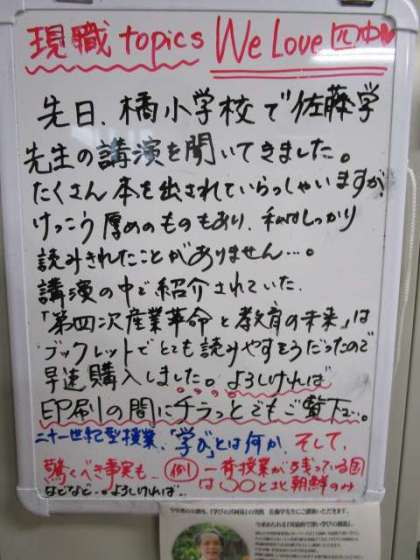 現職topics We Love 四中
先日、橘小学校で佐藤学
先生の講演を聞いてきました。
たくさん本を出されていらっしゃいますが、
けっこう厚めのものもあり、私はしっかり
読みきれたことがありません…。
講演の中で紹介されていた、
「第四次産業革命と教育の未来」は
ブックレットでとても読みやすそうだったので
早速購入しました。よろしければ
印刷の間にチラっとでもご覧下…。
二十一世紀型授業、「学び」とは何か、そして、
驚くべき事実も… 例 一斉授業が残っている国
は〇〇と北朝鮮のみ
などなど…。よろしければ…